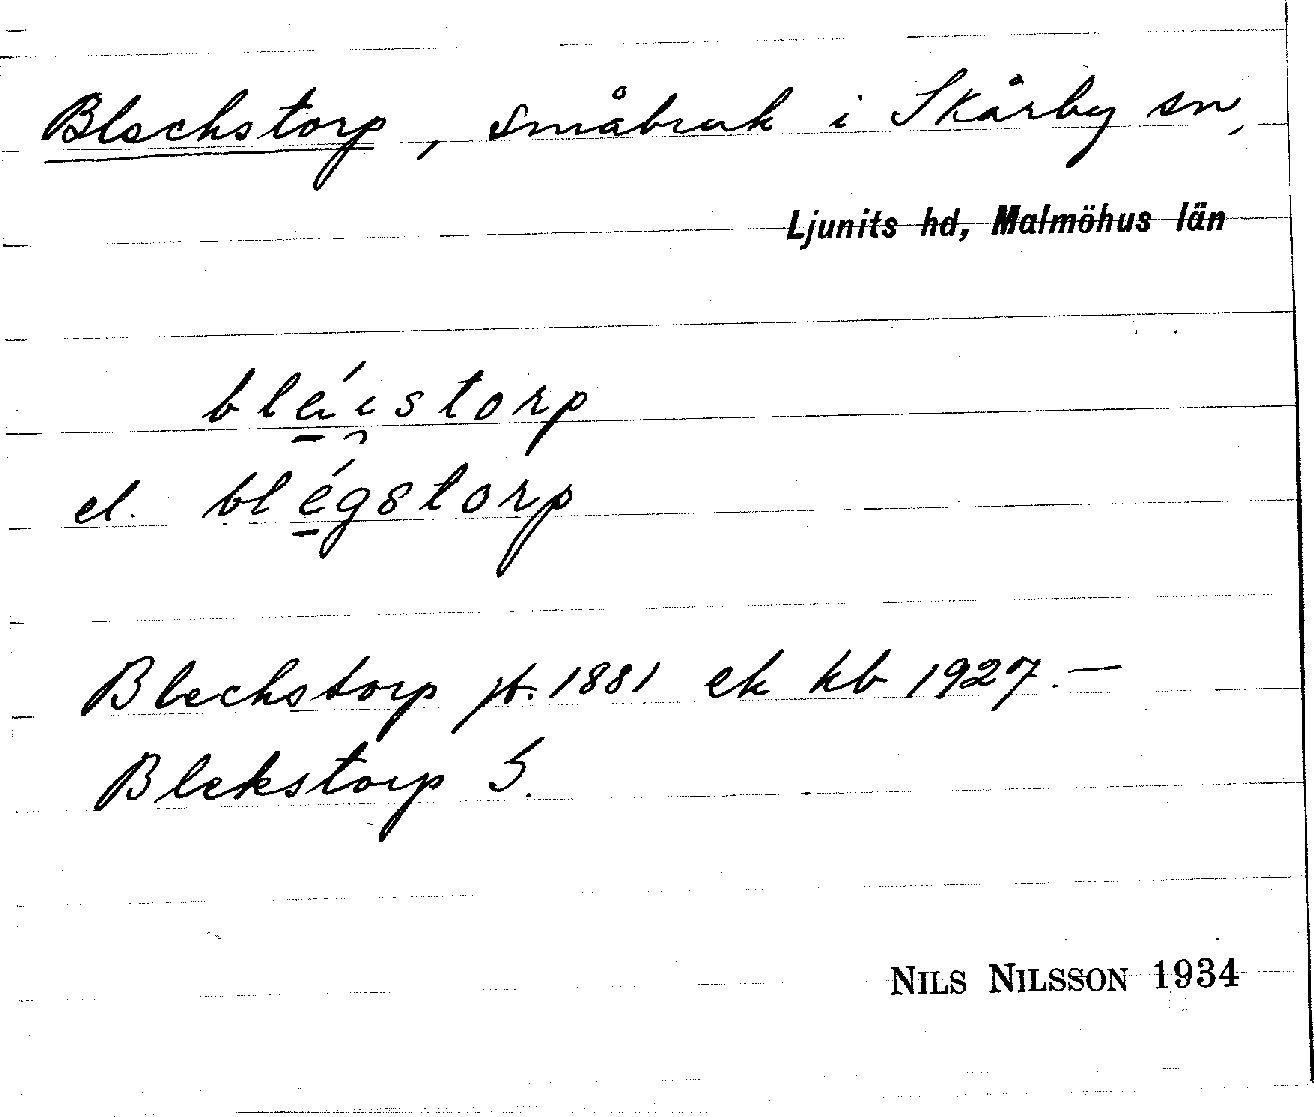 Blechstorp, småbruk i Skårby sn,
Ljunits hd, Malmöhus län
blé̱i̯storp
el. blé̱gstorp
Blechstorp jb. 1881 ek kb 1927. —
Blekstorp S.
NILS NILSSON 1934